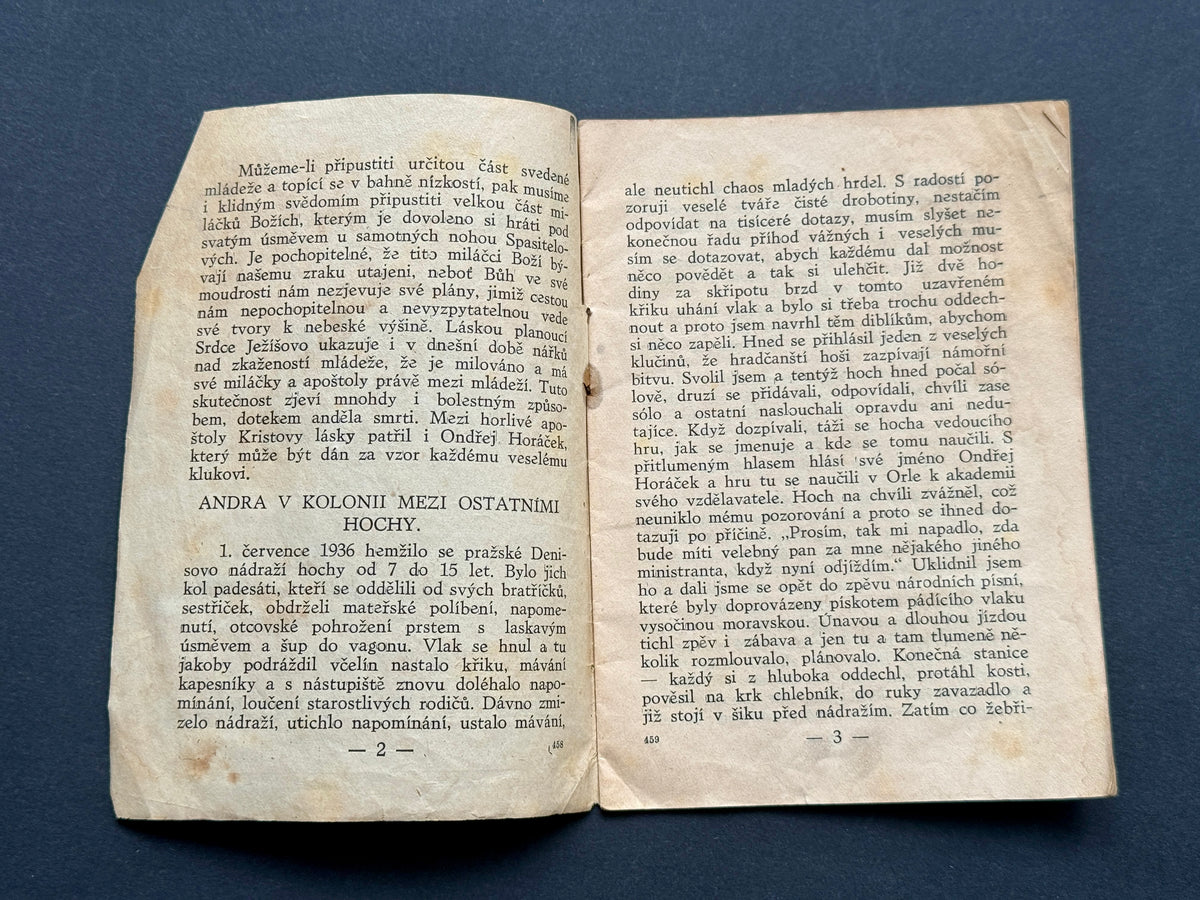 Můžeme-li připustiti určitou část svedené
mládeže a topící se v bahně nízkostí, pak musíme
i klidným svědomím připustiti velkou část mi-
láčků Božích, kterým je dovoleno si hráti pod
svatým úsměvem u samotných nohou Spasitelo-
vých. Je pochopitelné, že tito miláčci Boží bý-
vají našemu zraku utajeni, neboť Bůh ve své
moudrosti nám nezjevuje své plány, jimiž cestou
nám nepochopitelnou a nevyzpytatelnou vede
své tvory k nebeské výšině. Láskou planoucí
Srdce Ježíšovo ukazuje i v dnešní době nářků
nad zkažeností mládeže, že je milováno a má
své miláčky a apoštoly právě mezi mládeží. Tuto
skutečnost zjeví mnohdy i bolestným způso-
bem, dotekem anděla smrti. Mezi horlivé apo-
štoly Kristovy lásky patřil i Ondřej Horáček,
který může být dán za vzor každému veselému
klukovi.
ANDRA V KOLONII MEZI OSTATNÍMI
HOCHY.
1. července 1936 hemžilo se pražské Deni-
sovo nádraží hochy od 7 do 15 let. Bylo jich
kol padesáti, kteří se oddělili od svých bratříčků,
sestřiček, obdrželi mateřské políbení, napome-
nutí, otcovské pohrožení prstem s laskavým
úsměvem a šup do vagonu. Vlak se hnul a tu
jakoby podráždil včelín nastalo křiku, mávání
kapesníky a s nástupiště znovu doléhalo napo-
mínání, loučení starostlivých rodičů. Dávno zmi-
zelo nádraží, utichlo napomínání, ustalo mávání,
— 2 —
458
ale neutichl chaos mladých hrdel. S radostí po-
zoruji veselé tváře čisté drobotiny, nestačím
odpovídat na tisíceré dotazy, musím slyšet ne-
konečnou řadu příhod vážných i veselých mu-
sím se dotazovat, abych každému dal možnost
něco povědět a tak si ulehčit. Již dvě ho-
diny za skřipotu brzd v tomto uzavřeném
křiku uhání vlak a bylo si třeba trochu oddech-
nout a proto jsem navrhl těm diblíkům, abychom
si něco zapěli. Hned se přihlásil jeden z veselých
klučinů, že hradčanští hoši zazpívají námořní
bitvu. Svolil jsem a tentýž hoch hned počal só-
lově, druzí se přidávali, odpovídali, chvíli zase
sólo a ostatní naslouchali opravdu ani nedu-
tajíce. Když dozpívali, táži se hocha vedoucího
hru, jak se jmenuje a kde se tomu naučili. S
přitlumeným hlasem hlásí své jméno Ondřej
Horáček a hru tu se naučili v Orle k akademii
svého vzdělavatele. Hoch na chvíli zvážněl, což
neuniklo mému pozorování a proto se ihned do-
tazuji po příčině. „Prosím, tak mi napadlo, zda
bude míti velebný pan za mne nějakého jiného
ministranta, když nyní odjíždím.“ Uklidnil jsem
ho a dali jsme se opět do zpěvu národních písní,
které byly doprovázeny pískotem pádícího vlaku
vysočinou moravskou. Únavou a dlouhou jízdou
tichl zpěv i zábava a jen tu a tam tlumeně ně-
kolik rozmlouvalo, plánovalo. Konečná stanice
— každý si z hluboka oddechl, protáhl kosti,
pověsil na krk chlebník, do ruky zavazadlo a
již stojí v šiku před nádražím. Zatím co žebři-
459
— 3 —